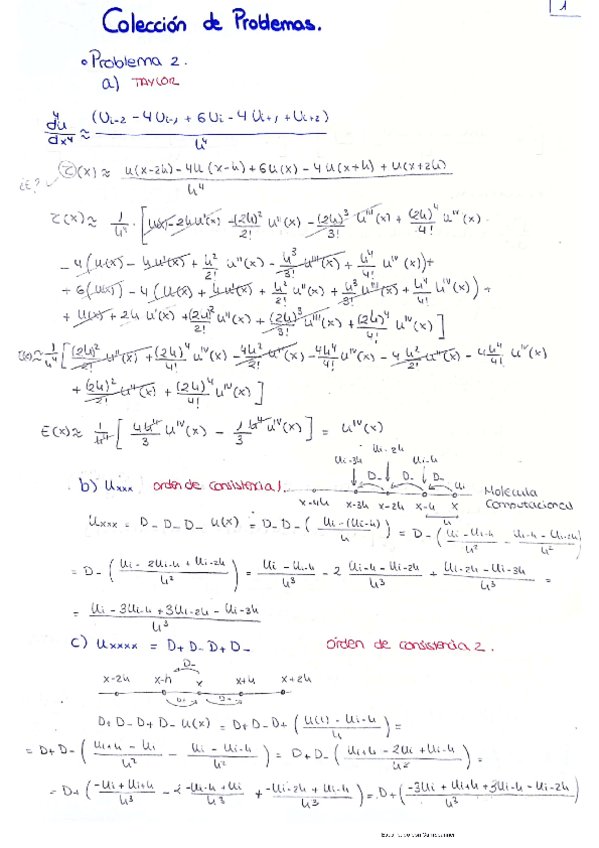 1
Colección de Problemas.
• Problema 2.
a) TAYLOR
d⁴u/dx⁴ ≈ (Ui-2 - 4Ui-1 + 6Ui - 4Ui+1 + Ui+2)/h⁴
¿E? τ(x) ≈ (u(x-2h) - 4u(x-h) + 6u(x) - 4u(x+h) + u(x+2h))/h⁴
τ(x) ≈ 1/h⁴ · [u(x) - 2hu'(x) + (2h)²/2! u''(x) - (2h)³/3! u'''(x) + (2h)⁴/4! uᴵⱽ(x)
- 4(u(x) - hu'(x) + h²/2! u''(x) - h³/3! u'''(x) + h⁴/4! uᴵⱽ(x)) +
+ 6(u(x)) - 4(u(x) + hu'(x) + h²/2! u''(x) + h³/3! u'''(x) + h⁴/4! uᴵⱽ(x)) +
+ u(x) + 2h u'(x) + (2h)²/2! u''(x) + (2h)³/3! u'''(x) + (2h)⁴/4! uᴵⱽ(x)]
τ(x) ≈ 1/h⁴ [(2h)²/2! u''(x) + (2h)⁴/4! uᴵⱽ(x) - 4h²/2! u''(x) - 4h⁴/4! uᴵⱽ(x) - 4h²/2! u''(x) - 4h⁴/4! uᴵⱽ(x)
+ (2h)²/2! u''(x) + (2h)⁴/4! uᴵⱽ(x)]
E(x) ≈ 1/h⁴ [4h⁴/3 uᴵⱽ(x) - 1/3 h⁴ uᴵⱽ(x)] = uᴵⱽ(x)
b) Uxxx orden de consistencia 1.
Ui-3h Ui-2h Ui-h Ui
D- D- D-
x-4h x-3h x-2h x-h x
h
Molécula
Computacional
Uxxx = D- D- D- u(x) = D- D- ((Ui - (Ui-h))/h) = D- ((Ui - Ui-h)/h² - (Ui-h - Ui-2h)/h²)
= D- ((Ui - 2Ui-h + Ui-2h)/h²) = (Ui - Ui-h)/h³ - 2 (Ui-h - Ui-2h)/h³ + (Ui-2h - Ui-3h)/h³ =
= (Ui - 3Ui-h + 3Ui-2h - Ui-3h)/h³
c) Uxxxx = D+ D- D+ D- orden de consistencia 2.
D-
x-2h x-h x x+h x+2h
D+ D+
D+ D- D+ D- u(x) = D+ D- D+ ((u(i) - Ui-h)/h) =
= D+ D- ((Ui+h - Ui)/h² - (Ui - Ui-h)/h²) = D+ D- ((Ui+h - 2Ui + Ui-h)/h²) =
= D+ ((-Ui + Ui+h)/h³ - 2 (-Ui-h + Ui)/h³ + (-Ui-2h + Ui-h)/h³) = D+ ((-3Ui + Ui+h + 3Ui-h - Ui-2h)/h³)